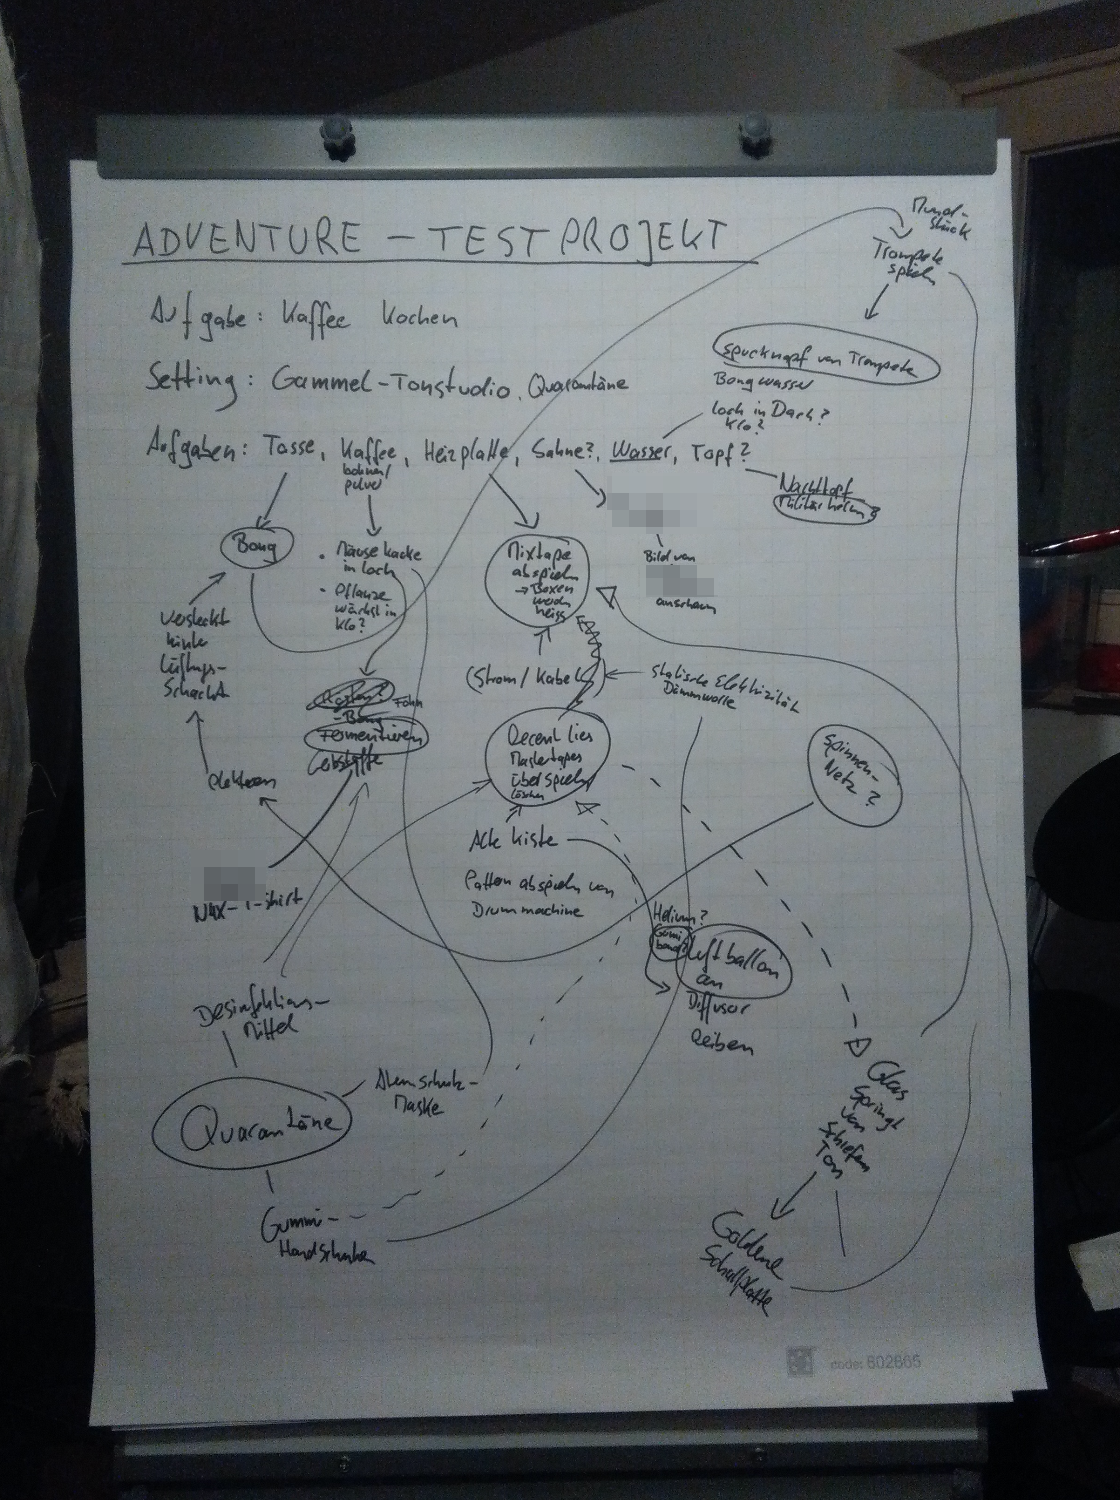 ADVENTURE - TESTPROJEKT
Aufgabe: Kaffee kochen
Setting: Gammel-Tonstudio, Quarantäne
Aufgaben: Tasse, Kaffee, Heizplatte, Sahne?, Wasser, Topf?
bohnen/
pulver
Mund-
stück
Trompete
spielen
Spucknapf von Trompete
Bongwasser
Loch in Dach?
Klo?
Nachttopf
Militärhelm?
Bild von
anschauen
Bong
• Mäusekacke
in Loch
• Pflanze
wächst in
Klo?
Mixtape
abspielen
→ Boxen
werden
heiss
Versteckt
hinter
Lüftungs-
Schacht
(Strom / Kabel)
Statische Elektrizität
Dämmwolle
Rösten?
Föhn
- Bong
Fermentieren
Decent lies
Mastertapes
überspielen
löschen
Spinnen-
Netz?
Alte Kiste
Patten abspielen von
Drummachine
-T-Shirt
Helium?
Gummi
band?
Luftballon
an
Diffusor
reiben
Desinfektions-
Mittel
Quarantäne
Atemschutz-
Maske
Gummi-
Handschuhe
Glas
springt
von
schiefem
Ton
Goldene
Schallplatte
code: 602665